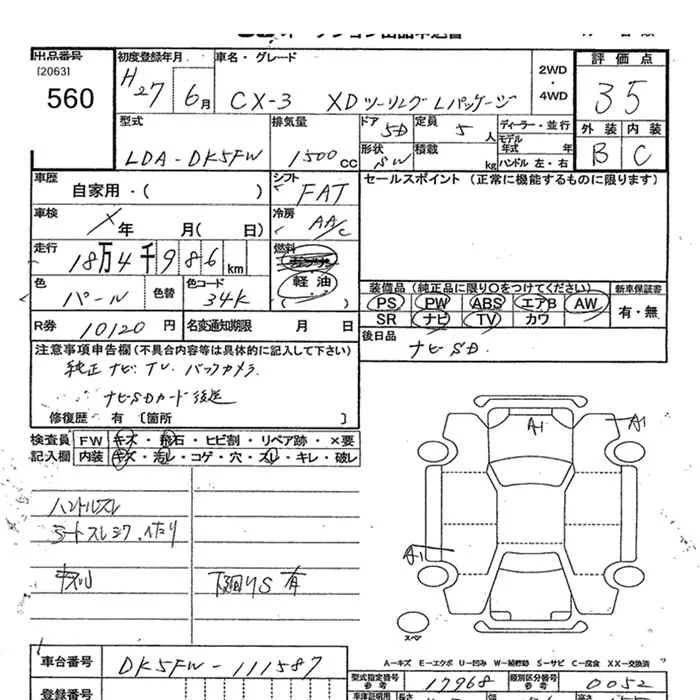 出品番号 初度登録年月 車名・グレード 2WD・4WD 評価点
[2063]
560 H27 6月 CX-3 XDツーリング Lパッケージ 35
型式 排気量 ドア 5D 定員 5人 ディーラー・並行 外装 内装
LDA-DK5FW 1500cc 形状 SW 積載 kg モデル年式 年 ハンドル 左・右 B C
車歴 自家用・( ) シフト FAT セールスポイント (正常に機能するものに限ります)
車検 年 月( 日) 冷房 AA/C
走行 18万4千986km 燃料 軽油
色 パール 色替 色コード 34K 装備品(純正品に限り○をつけてください) 新車保証書
PS PW ABS エアB AW 有・無
SR ナビ TV カワ
R券 10120円 名変通知期限 月 日 後日品 ナビSD.
注意事項申告欄(不具合内容等は具体的に記入して下さい)
純正ナビ. TV. バックカメラ
ナビSDカード後送
修復歴 有 [箇所 ]
検査員 FW キズ・飛石・ヒビ割・リペア跡・×要
記入欄 内装 キズ・汚レ・コゲ・穴・スレ・キレ・破レ
A1 A1
ハンドルスレ
シートスレシワ.
A1
下廻りS 有
スペア
A-キズ E-エクボ U-凹み W-補修跡 S-サビ C-腐食 XX-交換済
車台番号 DK5FW-111587 型式指定番号 参考 17968 類別区分番号 参考 0052
登録番号 車庫証明用 長さ 幅 高さ